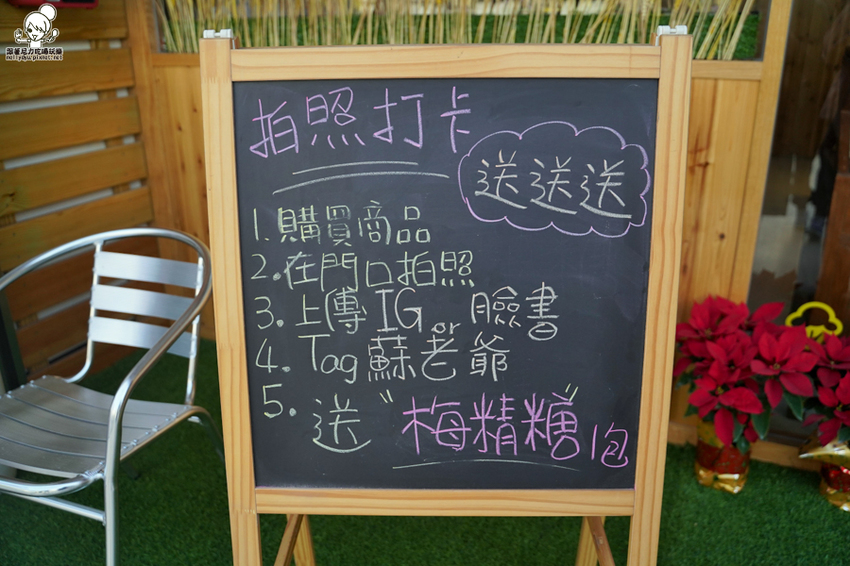 拍照打卡
送送送
1.購買商品
2.在門口拍照
3.上傳IG or 臉書
4.Tag蘇老爺
5.送"梅精糖"1包